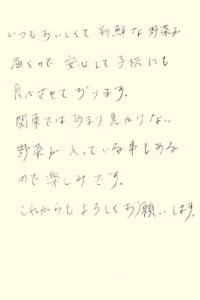 いつもおいしくて新鮮な野菜が
届くので安心して子供にも
食べさせております。
関東ではあまり見かけない
野菜が入っている事もある
ので楽しみです。
これからもよろしくお願いします。